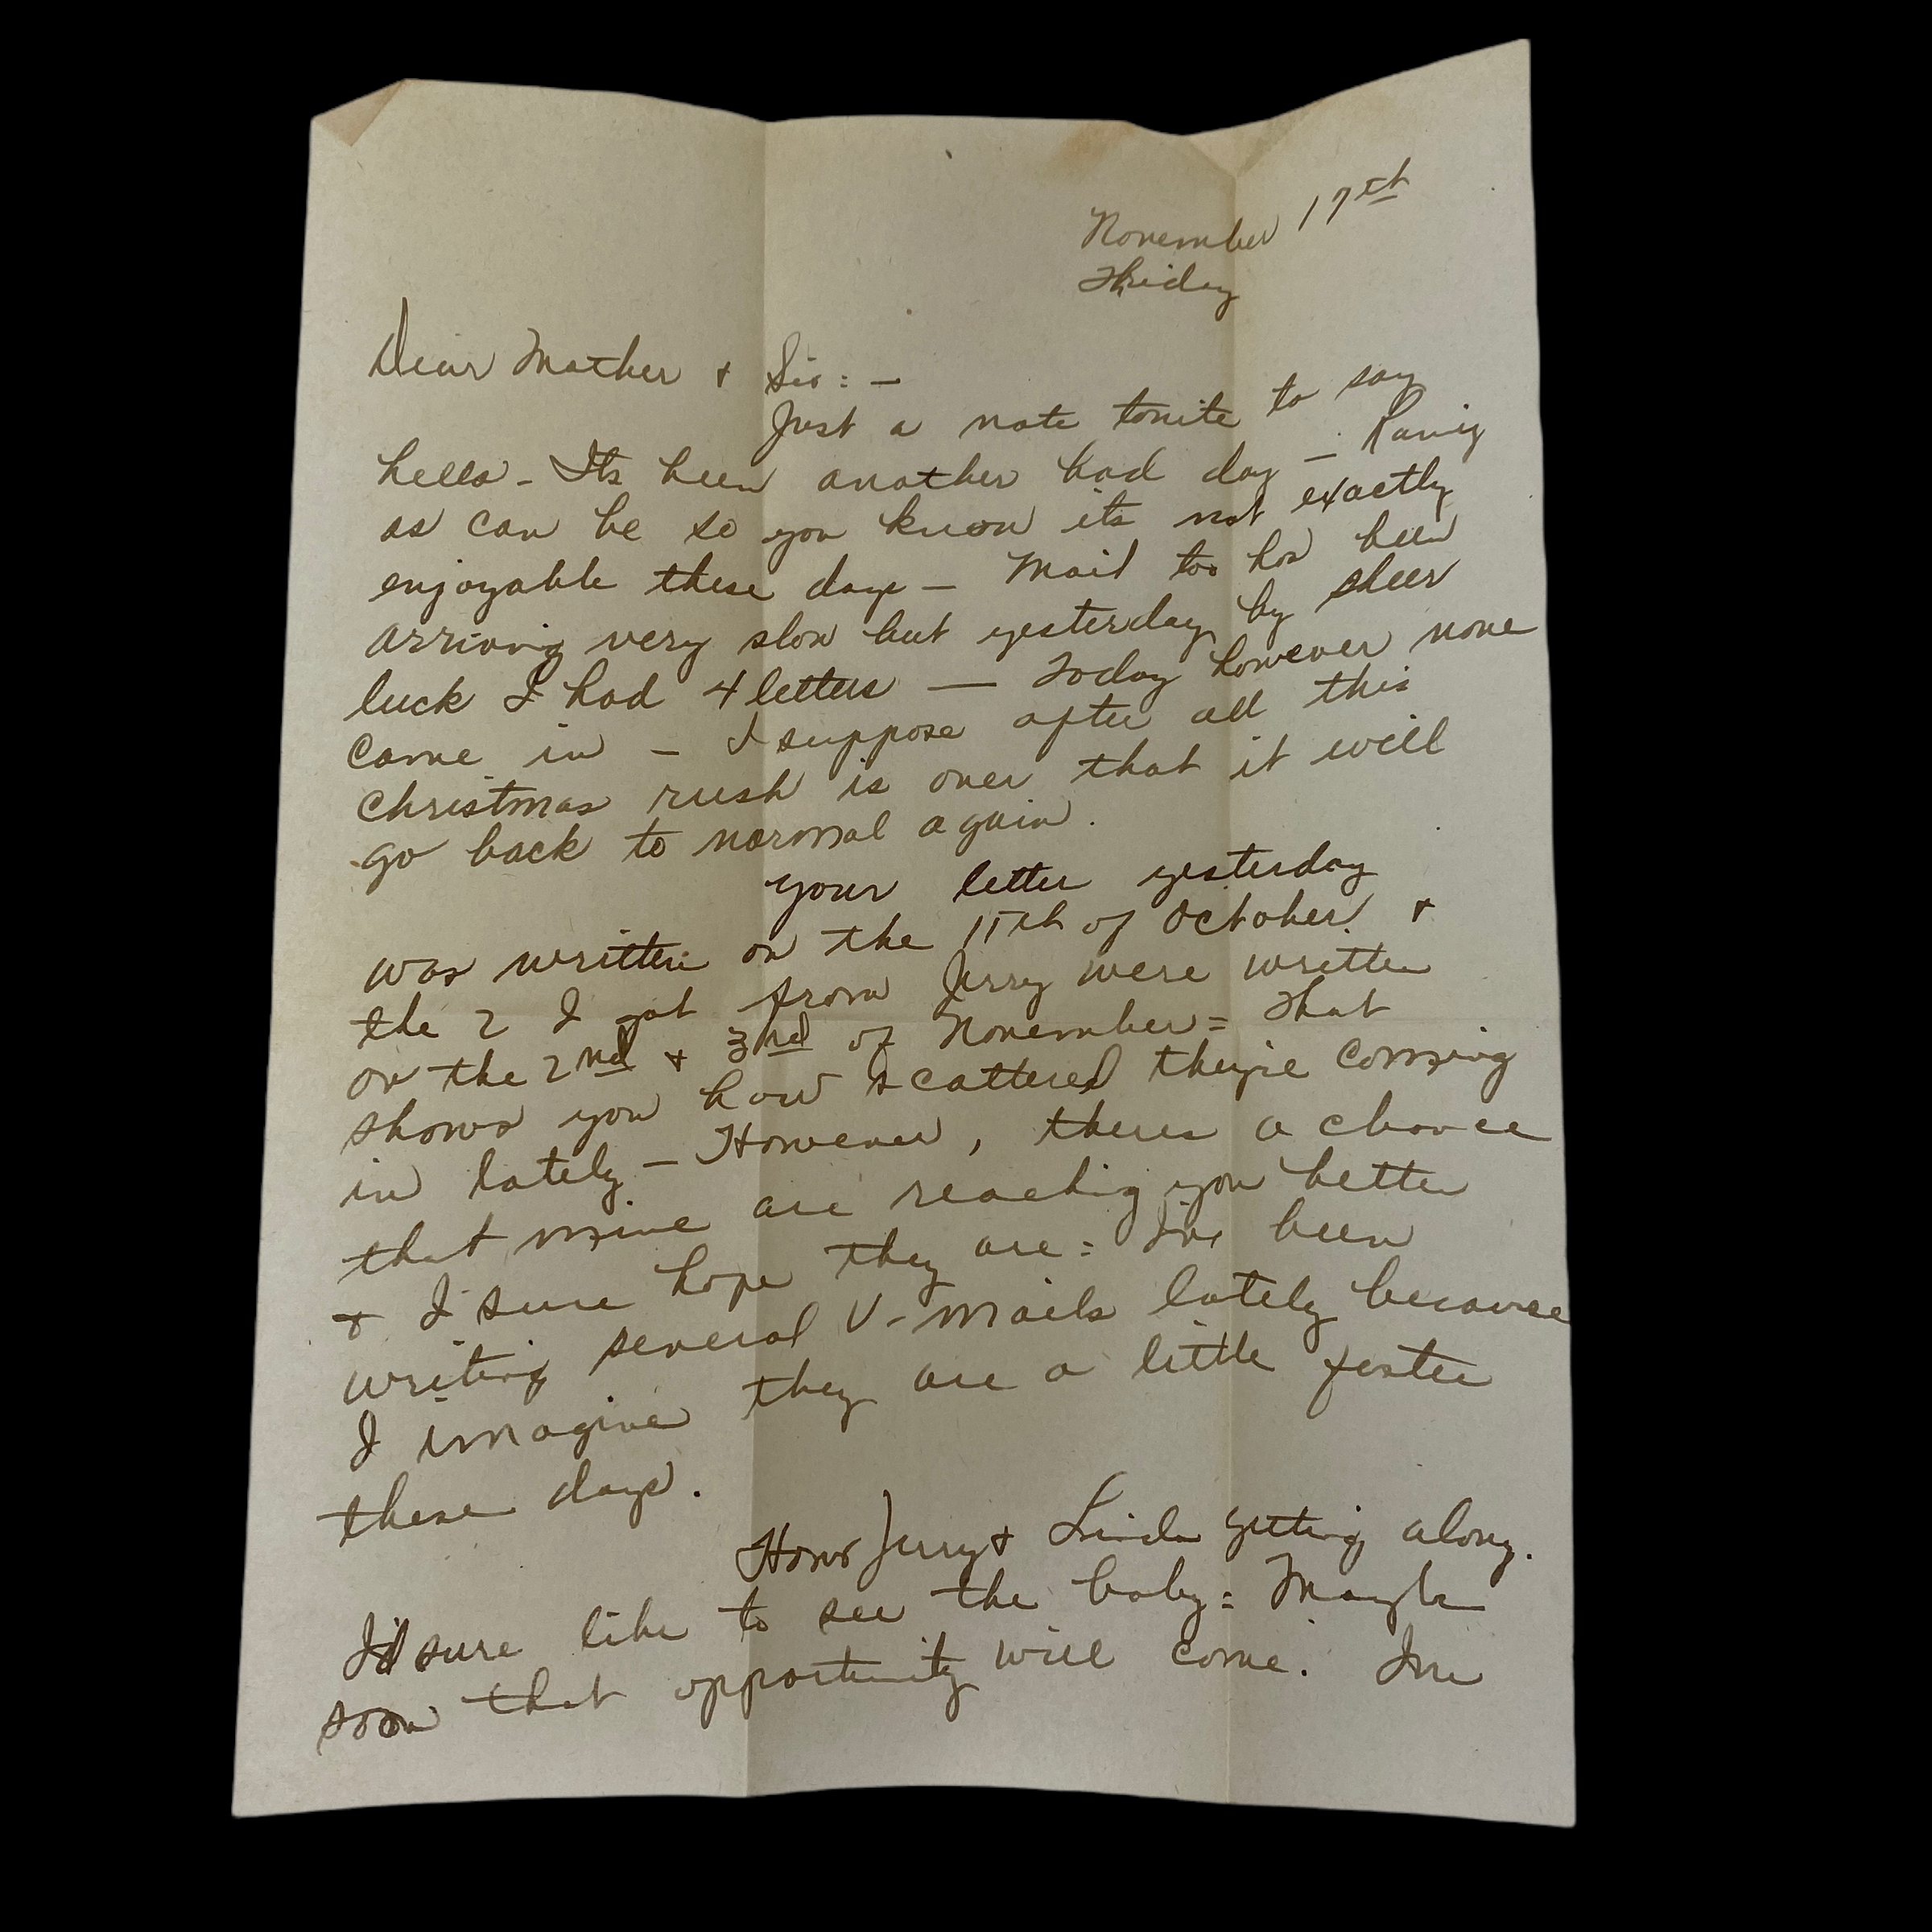 November 17th
Friday
Dear Mother & Sis: -
Just a note tonite to say
hello - Its been another bad day - Rainy
as can be so you know its not exactly
enjoyable these days - Mail too has been
arriving very slow but yesterday by sheer
luck I had 4 letters - Today however none
came in - I suppose after all this
christmas rush is over that it will
go back to normal again.
Your letter yesterday
was written on the 11th of October &
the 2 I got from Jerry were written
on the 2nd & 3rd of November = That
shows you how scattered they're coming
in lately - However, theres a chance
that mine are reaching you better
& I sure hope they are = Ive been
writing several V-Mails lately because
I imagine they are a little faster
these days.
Hows Jerry & Linda getting along.
I'd sure like to see the baby = Maybe
soon that opportunity will come. Ive